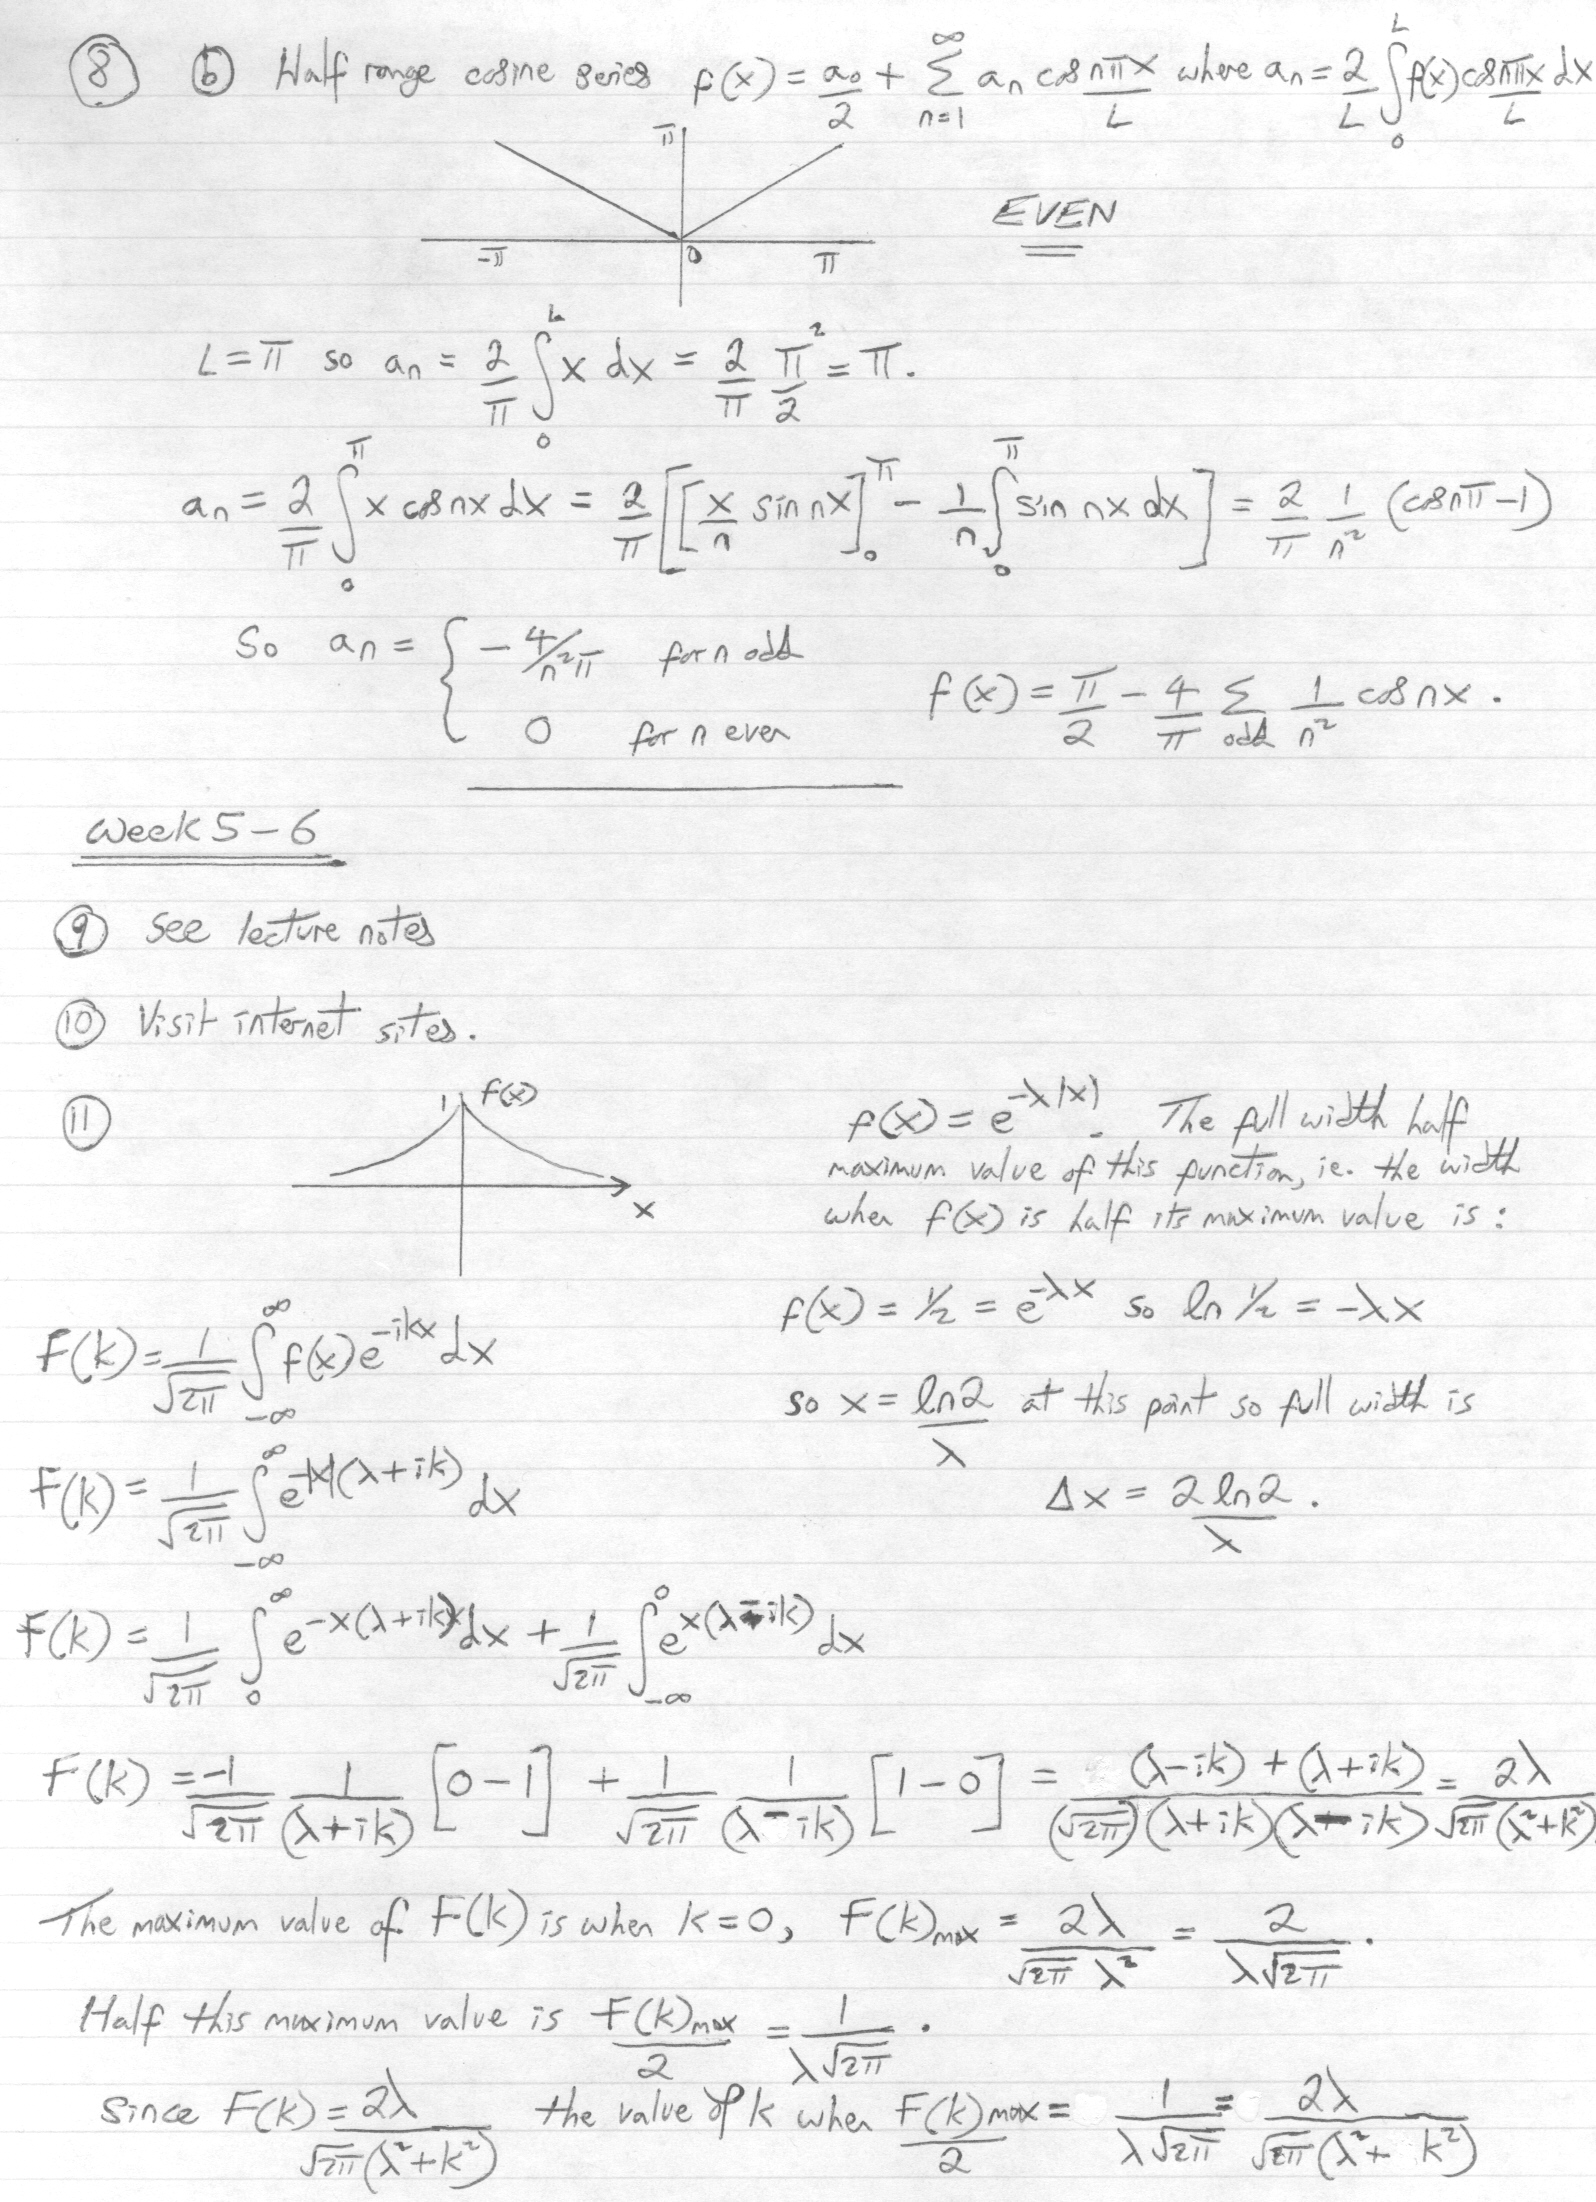 ⑧ ⓑ Half range cosine series f(x) = a₀/2 + ∑_{n=1}^{∞} aₙ cos nπx/L where aₙ = 2/L ∫₀^L f(x) cos nπx/L dx
π
-π 0 π
EVEN
L = π so aₙ = 2/π ∫₀^L x dx = 2/π π²/2 = π.
aₙ = 2/π ∫₀^π x cos nx dx = 2/π [[x/n sin nx]₀^π - 1/n ∫₀^π sin nx dx] = 2/π 1/n² (cos nπ - 1)
So aₙ = { -4/n²π for n odd
0 for n even
f(x) = π/2 - 4/π ∑_{odd} 1/n² cos nx.
Week 5-6
⑨ See lecture notes
⑩ Visit internet sites.
⑪
1 f(x)
x
f(x) = e^{-λ|x|}. The full width half
maximum value of this function, ie. the width
when f(x) is half its maximum value is:
f(x) = 1/2 = e^{-λx} so ln 1/2 = -λx
so x = ln2/λ at this point so full width is
Δx = 2 ln2/λ.
F(k) = 1/√2π ∫_{-∞}^{∞} f(x) e^{-ikx} dx
F(k) = 1/√2π ∫_{-∞}^{∞} e^{-|x|(λ+ik)} dx
F(k) = 1/√2π ∫₀^∞ e^{-x(λ+ik)} dx + 1/√2π ∫_{-∞}^0 e^{x(λ-ik)} dx
F(k) = -1/√2π 1/(λ+ik) [0-1] + 1/√2π 1/(λ-ik) [1-0] = (λ-ik)+(λ+ik)/(√2π)(λ+ik)(λ-ik) = 2λ/√2π(λ²+k²)
The maximum value of F(k) is when k=0, F(k)max = 2λ/√2π λ² = 2/λ√2π.
Half this maximum value is F(k)max/2 = 1/λ√2π.
Since F(k) = 2λ/√2π(λ²+k²) the value of k when F(k)max/2 = 1/λ√2π = 2λ/√2π(λ²+k²)